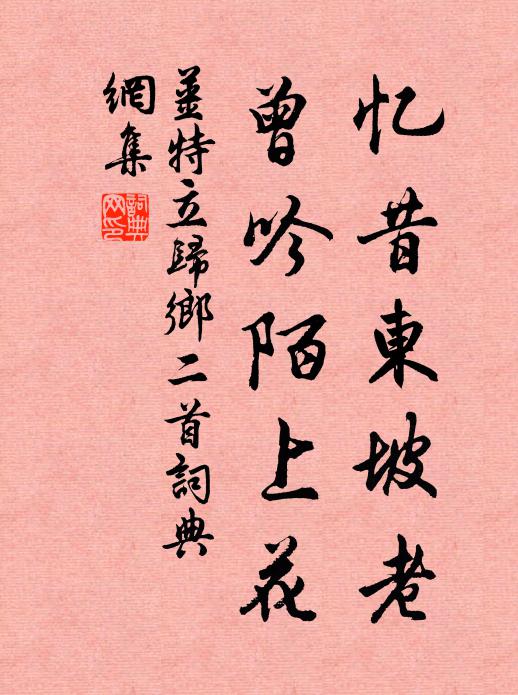 忆昔東坡老
曾吟陌上花
姜特立歸鄉二首詞典
網集
詞典網印